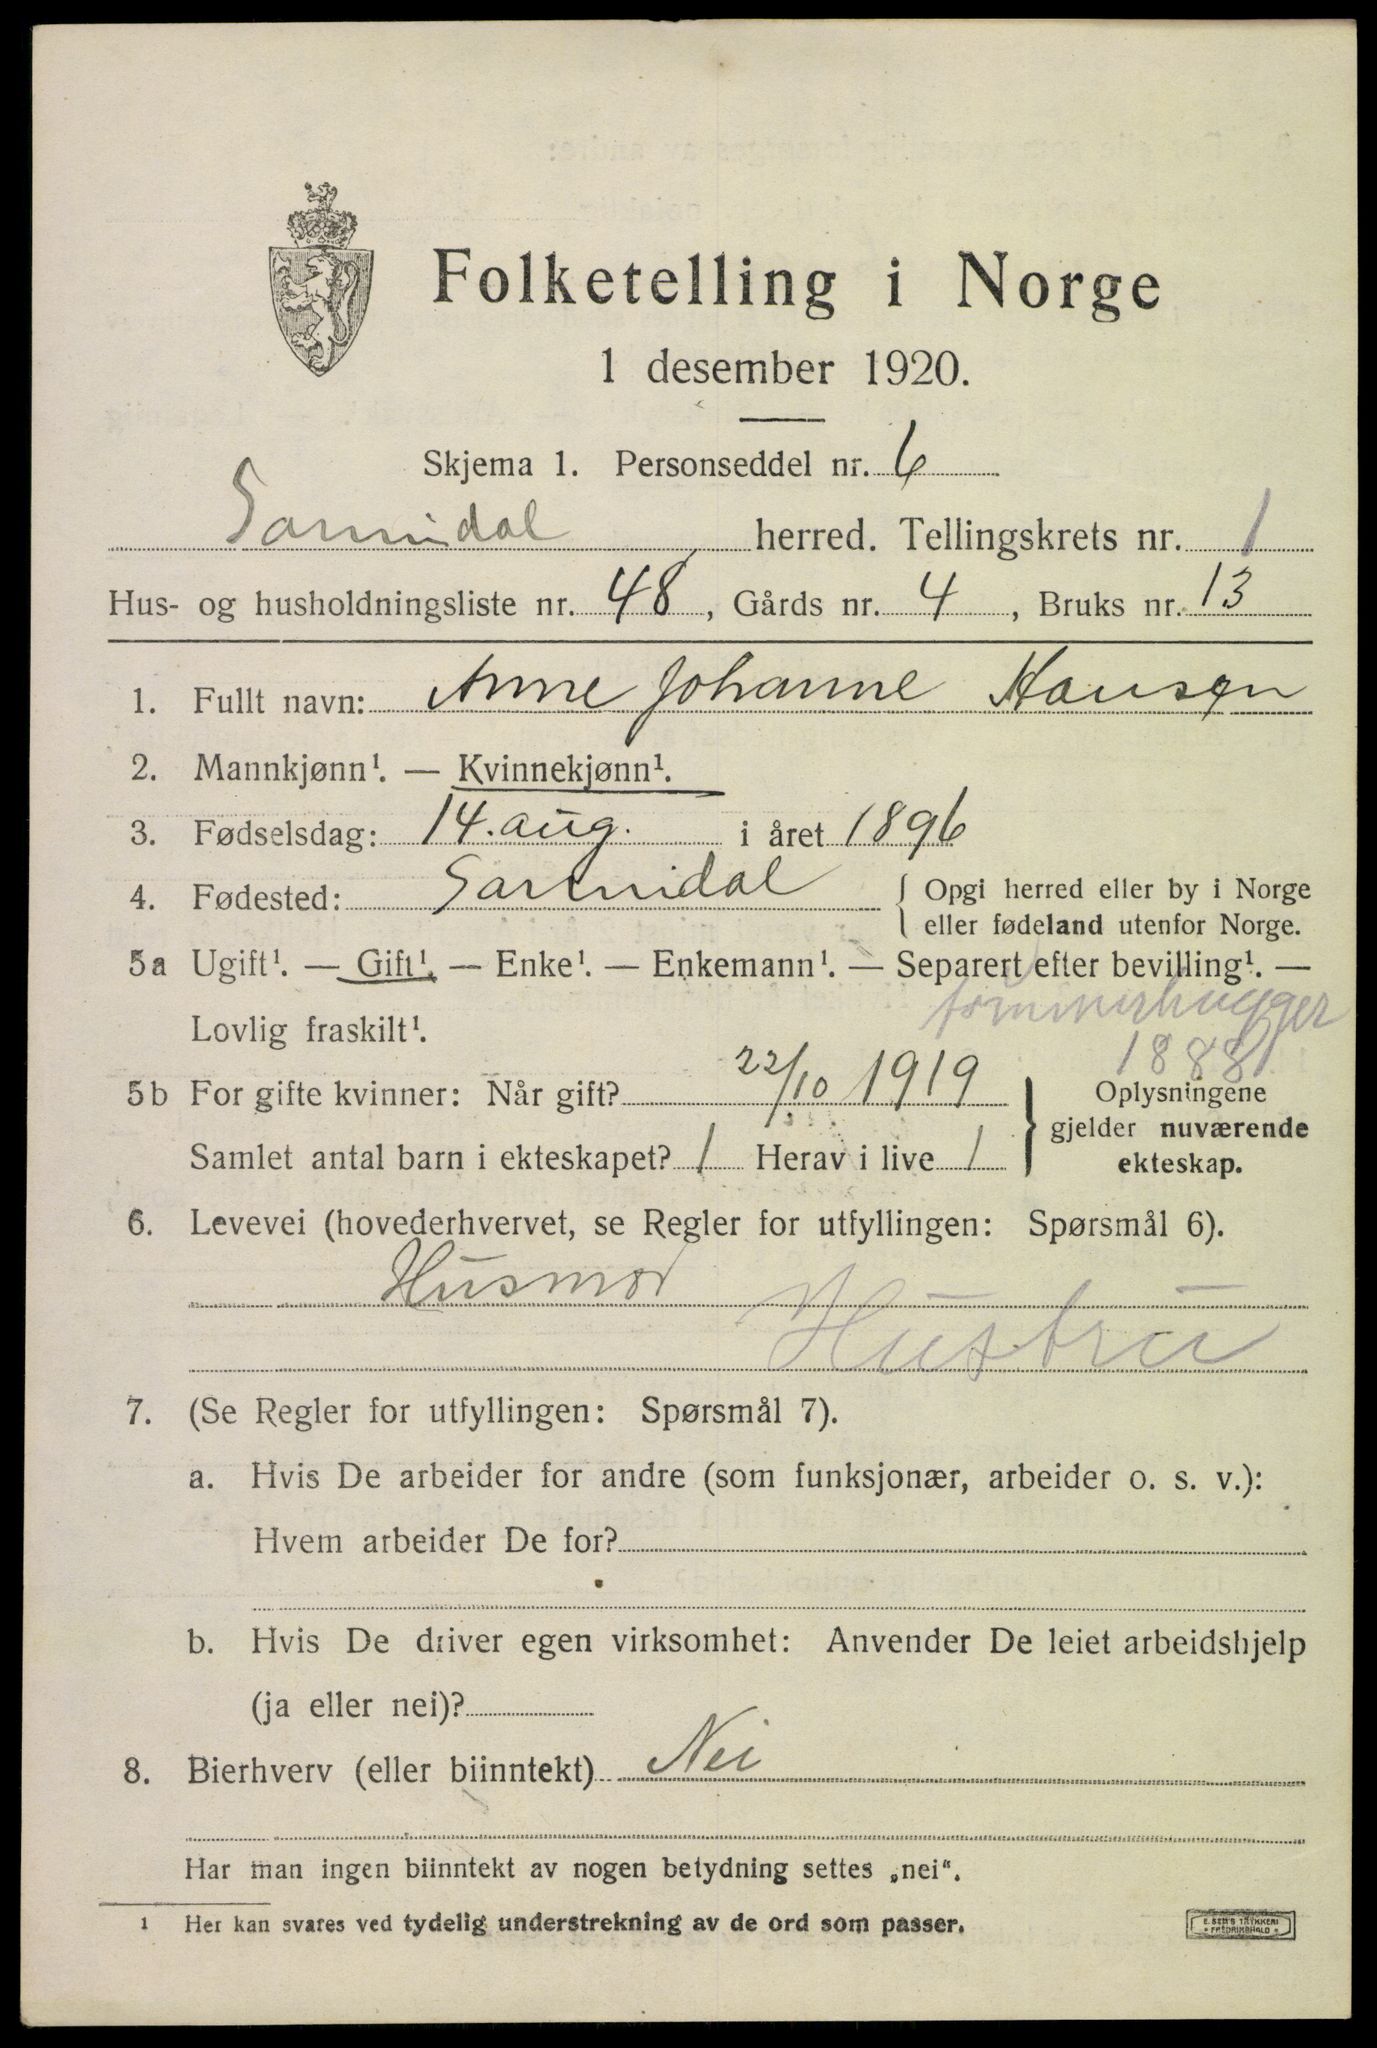 Folketelling i Norge
1 desember 1920.
Skjema 1. Personseddel nr. 6
Sannidal herred. Tellingskrets nr. 1
Hus- og husholdningsliste nr. 48, Gårds nr. 4, Bruks nr. 13
1. Fullt navn: Anne Johanne Hansen
2. Mannkjønn¹. — Kvinnekjønn¹.
3. Fødselsdag: 14. aug. i året 1896
4. Fødested: Sannidal { Opgi herred eller by i Norge
eller fødeland utenfor Norge.
5a Ugift¹. — Gift¹. — Enke¹. — Enkemann¹. — Separert efter bevilling¹. —
Lovlig fraskilt¹.
tømmerhugger
1888
5b For gifte kvinner: Når gift? 22/10 1919
Samlet antal barn i ekteskapet? 1 Herav i live 1
} Oplysningene
gjelder nuværende
ekteskap.
6. Levevei (hovederhvervet, se Regler for utfyllingen: Spørsmål 6).
Husmor
Hustru
7. (Se Regler for utfyllingen: Spørsmål 7).
a. Hvis De arbeider for andre (som funksjonær, arbeider o. s. v.):
Hvem arbeider De for?
b. Hvis De driver egen virksomhet: Anvender De leiet arbeidshjelp
(ja eller nei)?
8. Bierhverv (eller biinntekt) Nei
Har man ingen biinntekt av nogen betydning settes „nei“.
¹ Her kan svares ved tydelig understrekning av de ord som passer.
E. SEM'S TRYKKERI
• FREDRIKSHALD •